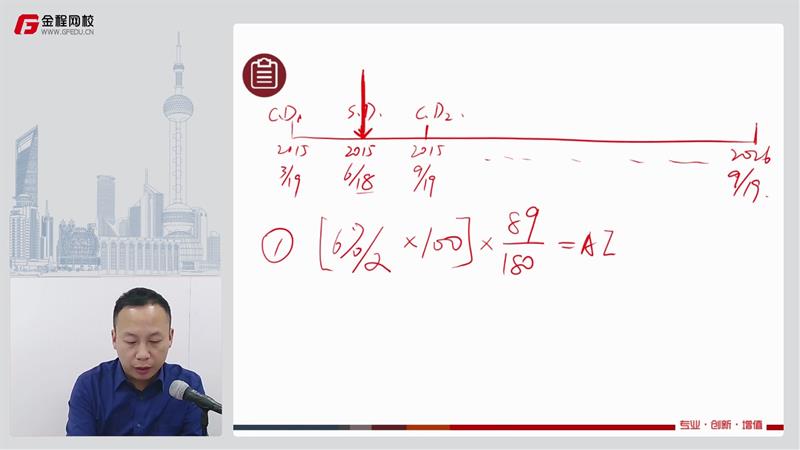 金程网校
WWW.GFEDU.CN
C.D₁ S.D. C.D₂.
2015 2015 2015 2026
3/19 6/18 9/19 9/19.
① [6%/2 ×100] × 89/180 = AI
专业·创新·增值